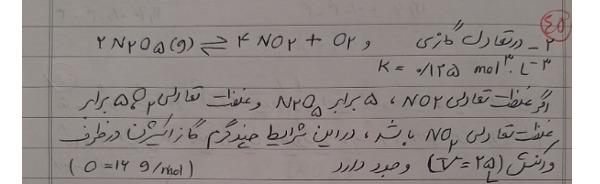 ۴۵
۲- در تعادل گازی و 2N2O5(g) ⇌ 4NO2 + O2
K = 0/125 mol³.L⁻³
اگر غلظت تعادلی NO2، ۵ برابر N2O5 و غلظت تعادلی O2 ۵ برابر
غلظت تعادلی NO2 باشد، در این شرایط چند گرم گاز اکسیژن در ظرف
واکنش (V=25L) وجود دارد (O=16 g/mol)